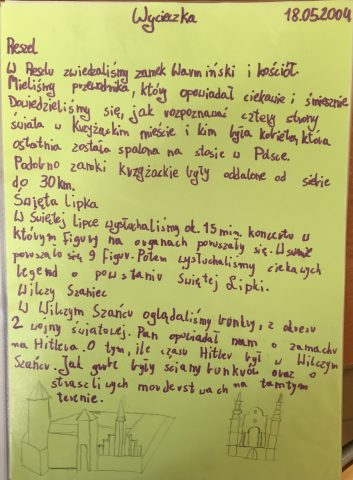 Wycieczka 18.05.2004
Reszel
W Reszlu zwiedzaliśmy zamek Warmiński i kościół.
Mieliśmy przewodnika, który opowiadał ciekawie i śmiesznie
Dowiedzieliśmy się, jak rozpoznawać cztery strony
świata w Krzyżackim mieście i kim była kobieta, która
ostatnia została spalona na stosie w Polsce.
Podobno zamki krzyżackie były oddalone od siebie
do 30km.
Święta Lipka
W Świętej lipce wysłuchaliśmy ok. 15 min. koncertu w
którym figury na organach poruszały się. W sumie
poruszało się 9 figur. Potem wysłuchaliśmy ciekawych
legend o powstaniu Świętej Lipki.
Wilczy Szaniec
W Wilczym Szańcu oglądaliśmy bunkry, z okresu
2 wojny światowej. Pan opowiadał nam o zamachu
na Hitlera. O tym, ile czasu Hitler był w Wilczym
Szańcu. Jak grube były ściany bunkrów oraz o
straszliwych morderstwach na tamtym
terenie.